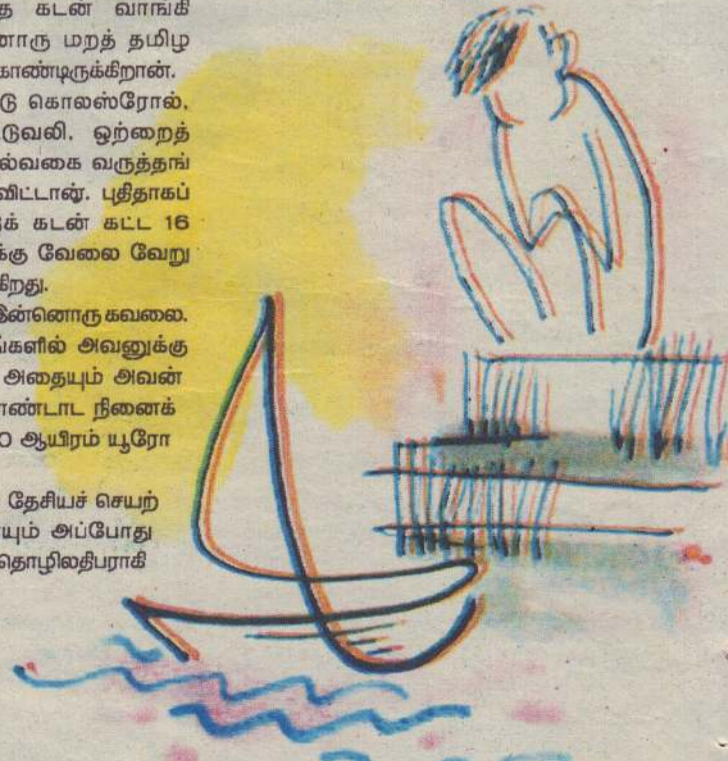 கடன் வாங்கி
னொரு மறத் தமிழ
காண்டிருக்கிறான்.
டு கொலஸ்ரோல்,
டுவலி. ஒற்றைத்
ல்வகை வருத்தங்
விட்டான். புதிதாகப்
க் கடன் கட்ட 16
க்கு வேலை வேறு
கிறது.
இன்னொரு கவலை.
ங்களில் அவனுக்கு
அதையும் அவன்
ாண்டாட நினைக்
0 ஆயிரம் யூரோ
தேசியச் செயற்
யும் அப்போது
தொழிலதிபராகி